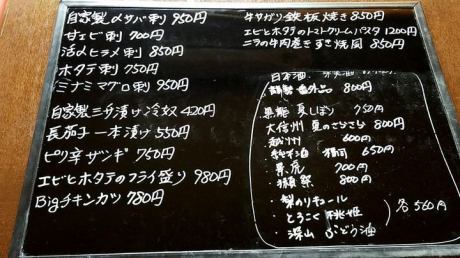 自家製〆サバ刺 950円
甘エビ刺 700円
活〆ヒラメ刺 850円
ホタテ刺 750円
ミナミマグロ刺 950円
自家製三升漬け冷奴 420円
長茄子一本漬け 550円
ピリ辛ザンギ 750円
エビとホタテのフライ盛り 980円
Bigチキンカツ 780円
牛サガリ鉄板焼き 850円
エビとホタテのトマトクリームパスタ 1200円
ニラの牛肉巻きすき焼風 850円
日本酒
番外品 800円
黒龍 夏しぼり 750円
大信州 夏のさらさら 800円
越州 600円
純米酒 650円
700円
獺祭 800円
・梨のリキュール
・とろこく桃姫
・深山ぶどう酒
各560円